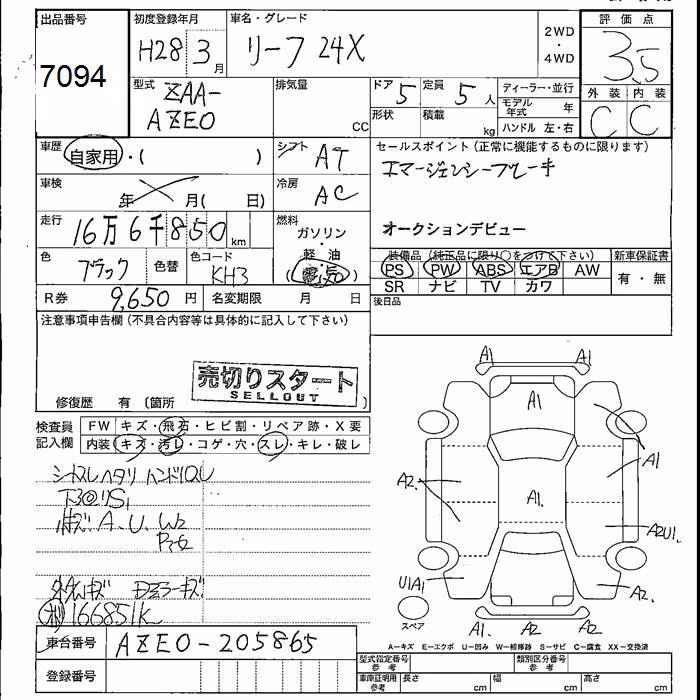 出品番号
7094
初度登録年月
H28 3月
車名・グレード
リーフ 24X
2WD
・
4WD
評価点
3.5
外装 内装
C C
型式
ZAA-
AZE0
排気量
CC
ドア 5
定員 5人
形状
積載 kg
ディーラー・並行
モデル年式 年
ハンドル 左・右
車歴
自家用・( )
シフト AT
セールスポイント (正常に機能するものに限ります)
エマージェンシーブレーキ
車検 年 月( 日)
冷房 AC
オークションデビュー
走行 16万6千850km
燃料
ガソリン・
軽油
(電気)
色 ブラック
色替
色コード KH3
装備品 (純正品に限り○をつけて下さい)
新車保証書
PS PW ABS エアB AW
SR ナビ TV カワ
有・無
R券 9,650円
名変期限 月 日
後日品
注意事項申告欄 (不具合内容等は具体的に記入して下さい)
売切りスタート
SELLOUT
修復歴 有 (箇所 )
検査員
記入欄
FW キズ・飛石・ヒビ割・リペア跡・X要
内装 キズ・汚レ・コゲ・穴・スレ・キレ・破レ
シートスレ ハタリ ハンドル
A.U. W2
キズ
166851K
A1 A1
A1
A1
A2.
A1.
A2U1.
U1A1
A2.
スペア
A1. A2 A2
A=キズ E=エクボ U=凹み W=補修跡 S=サビ C=腐食 XX=交換済
車台番号 AZE0-205865
登録番号
型式指定番号 参考
類別区分番号 参考
車庫証明用 参考
長さ cm
幅 cm
高さ cm